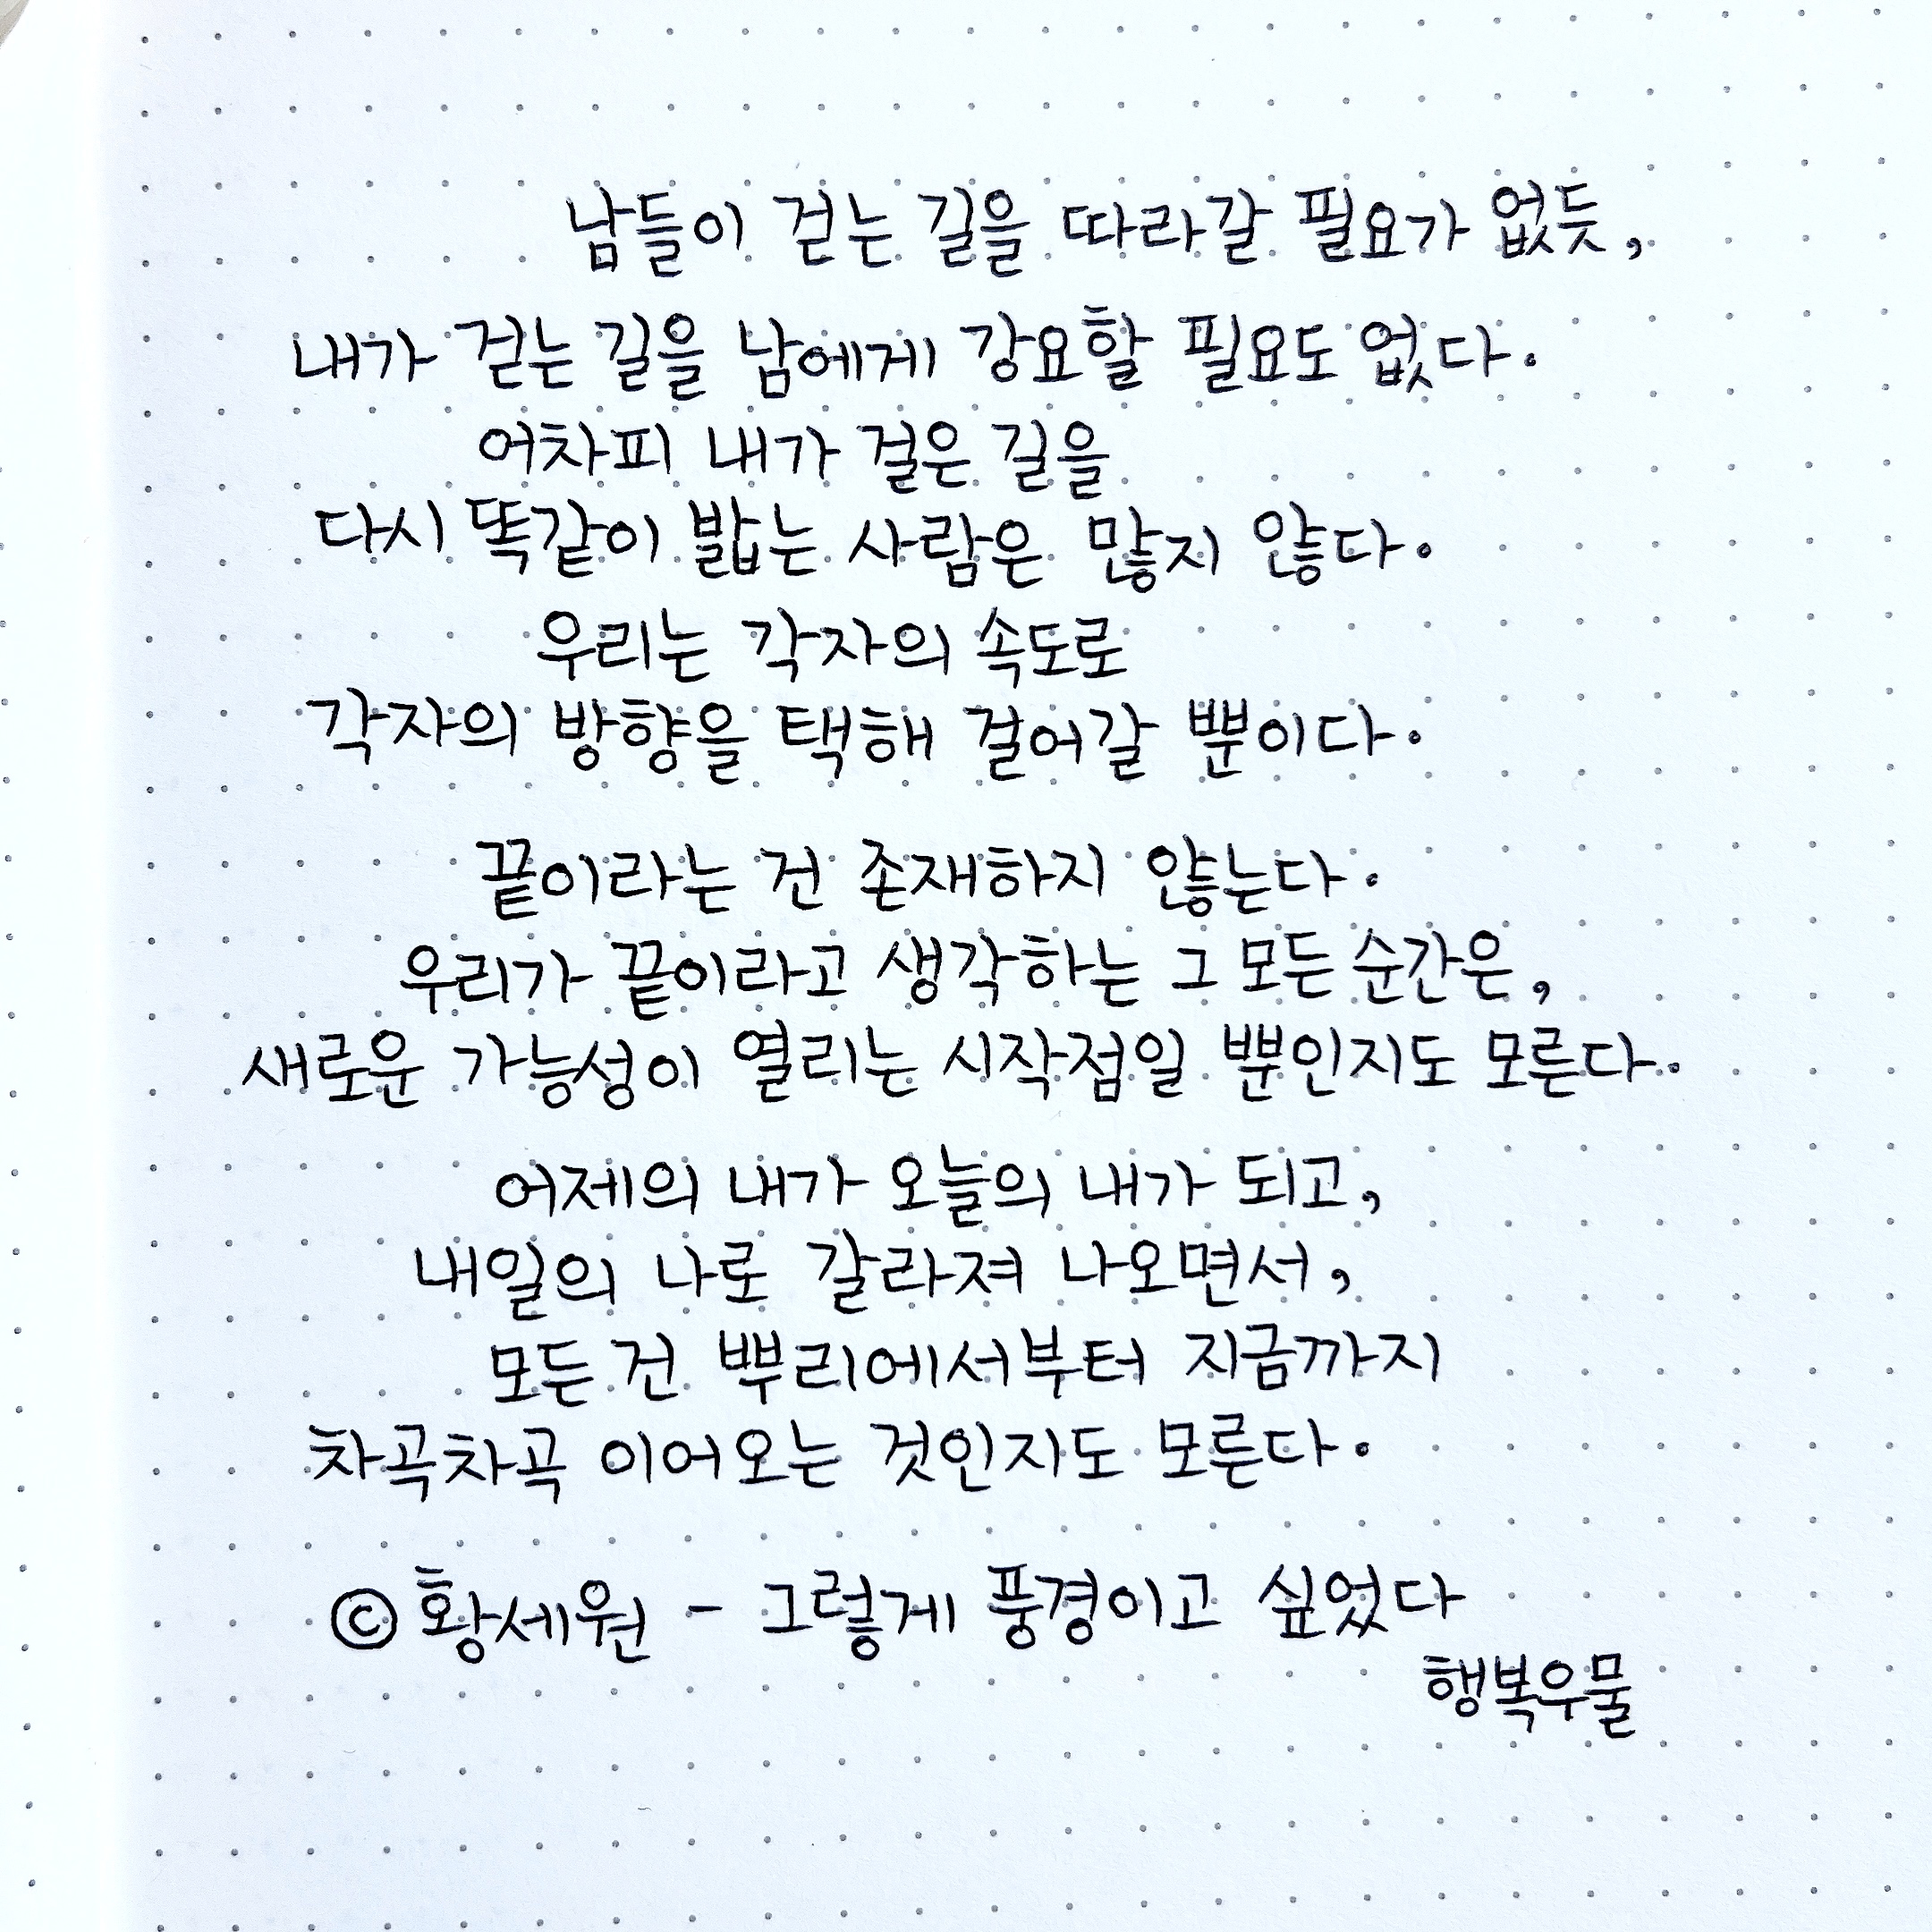 남들이 걷는 길을 따라갈 필요가 없듯,
내가 걷는 길을 남에게 강요할 필요도 없다.
어차피 내가 걸은 길을
다시 똑같이 밟는 사람은 많지 않다.
우리는 각자의 속도로
각자의 방향을 택해 걸어갈 뿐이다.
끝이라는 건 존재하지 않는다.
우리가 끝이라고 생각하는 그 모든 순간은,
새로운 가능성이 열리는 시작점일 뿐인지도 모른다.
어제의 내가 오늘의 내가 되고,
내일의 나로 갈라져 나오면서,
모든 건 뿌리에서부터 지금까지
차곡차곡 이어오는 것인지도 모른다.
© 황세원 - 그렇게 풍경이고 싶었다
행복우물